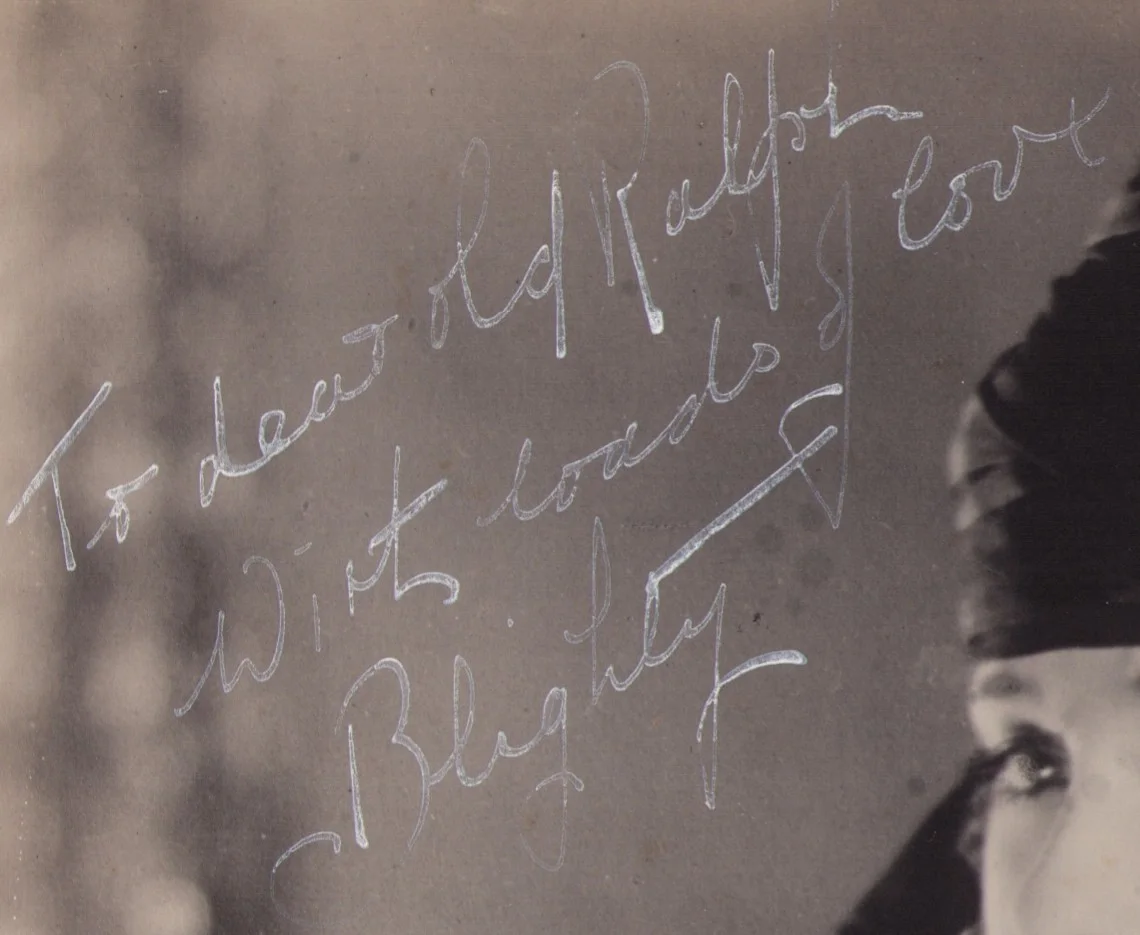 To dear old Ralph
With loads of love
Blighty